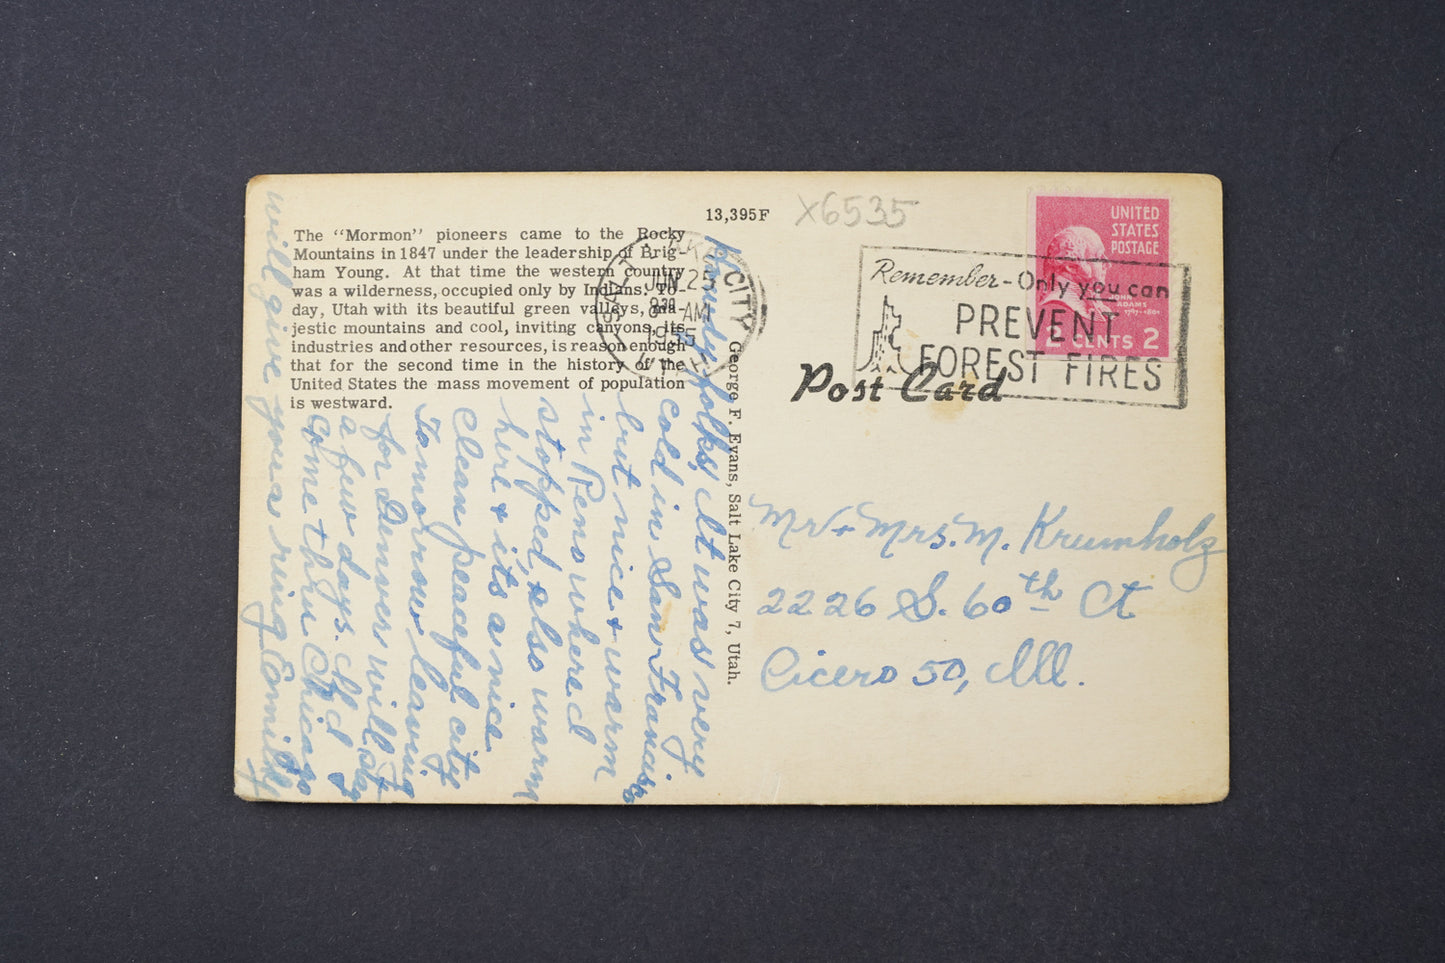 13,395F
X6535
The "Mormon" pioneers came to the Rocky
Mountains in 1847 under the leadership of Brig-
ham Young. At that time the western country
was a wilderness, occupied only by Indians. To-
day, Utah with its beautiful green valleys, ma-
jestic mountains and cool, inviting canyons, its
industries and other resources, is reason enough
that for the second time in the history of the
United States the mass movement of population
is westward.
SALT LAKE CITY
JUN 25
8 30 AM
1955
UTAH
Remember - Only you can
PREVENT
FOREST FIRES
UNITED
STATES
POSTAGE
JOHN
ADAMS
1797-1801
2 CENTS 2
Post Card
George F. Evans, Salt Lake City 7, Utah.
Howdy folks, It was very
cold in San Francisco
but nice & warm
in Reno where I
stopped, also warm
here & its a nice
clean peaceful city
Tomorrow leaving
for Denver will stay
a few days. If I
come thru Chicago
will give you a ring Emily
Mr + Mrs. M. Krumholz
2226 S. 60th Ct
Cicero 50, Ill.